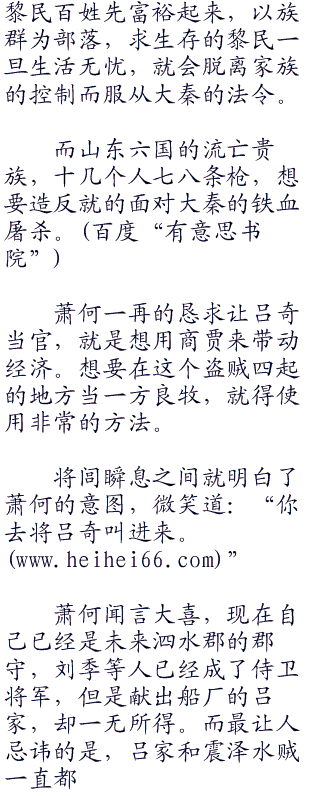 黎民百姓先富裕起来，以族
群为部落，求生存的黎民一
旦生活无忧，就会脱离家族
的控制而服从大秦的法令。
而山东六国的流亡贵
族，十几个人七八条枪，想
要造反就的面对大秦的铁血
屠杀。(百度“有意思书
院”)
萧何一再的恳求让吕奇
当官，就是想用商贾来带动
经济。想要在这个盗贼四起
的地方当一方良牧，就得使
用非常的方法。
将闾瞬息之间就明白了
萧何的意图，微笑道：“你
去将吕奇叫进来。
(www.heihei66.com)”
萧何闻言大喜，现在自
己已经是未来泗水郡的郡
守，刘季等人已经成了侍卫
将军，但是献出船厂的吕
家，却一无所得。而最让人
忌讳的是，吕家和震泽水贼
一直都